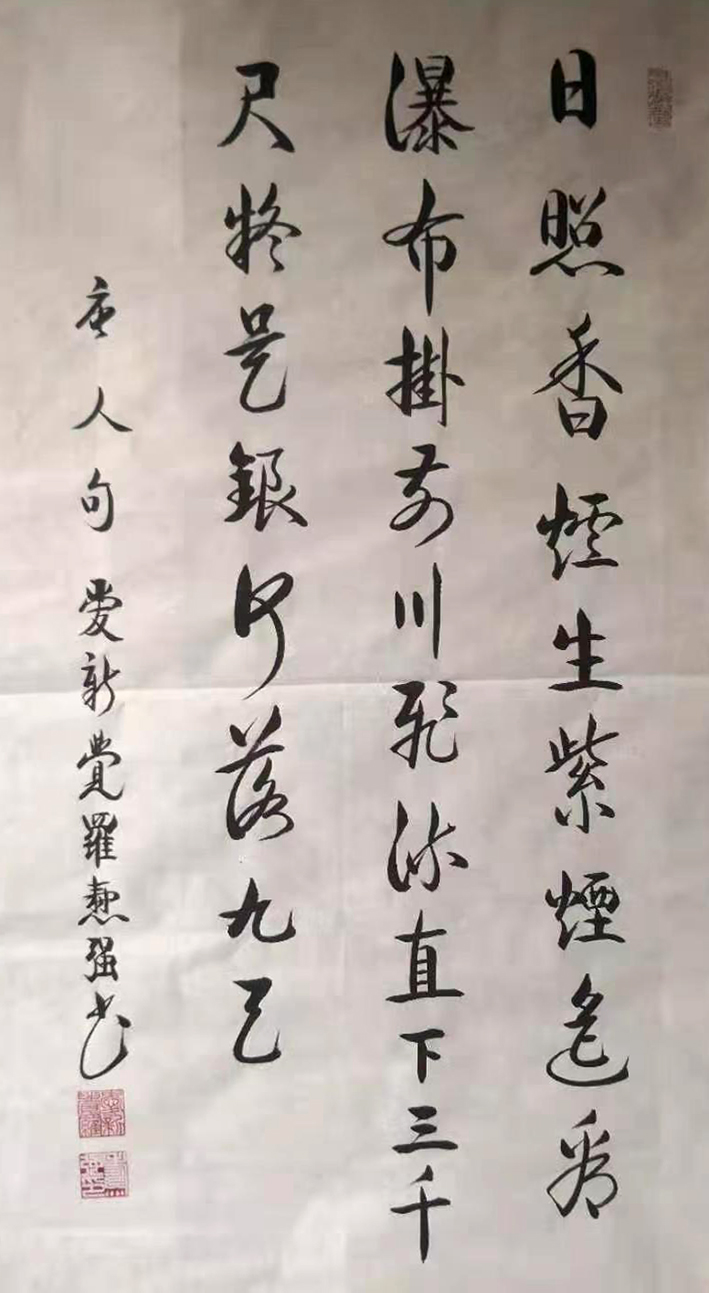 日照香爐生紫煙遙看
瀑布掛前川飛流直下三千
尺疑是銀河落九天
唐人句 愛新覺羅强書